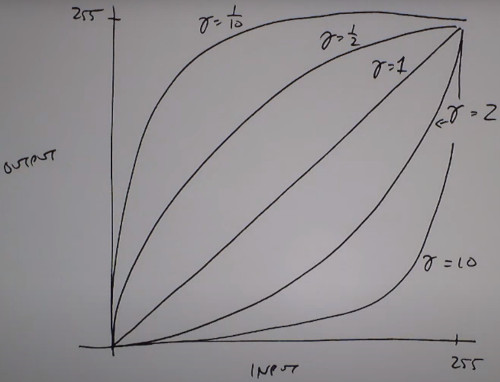 255
γ = 1/10
γ = 1/2
γ = 1
OUTPUT
γ = 2
γ = 10
INPUT
255